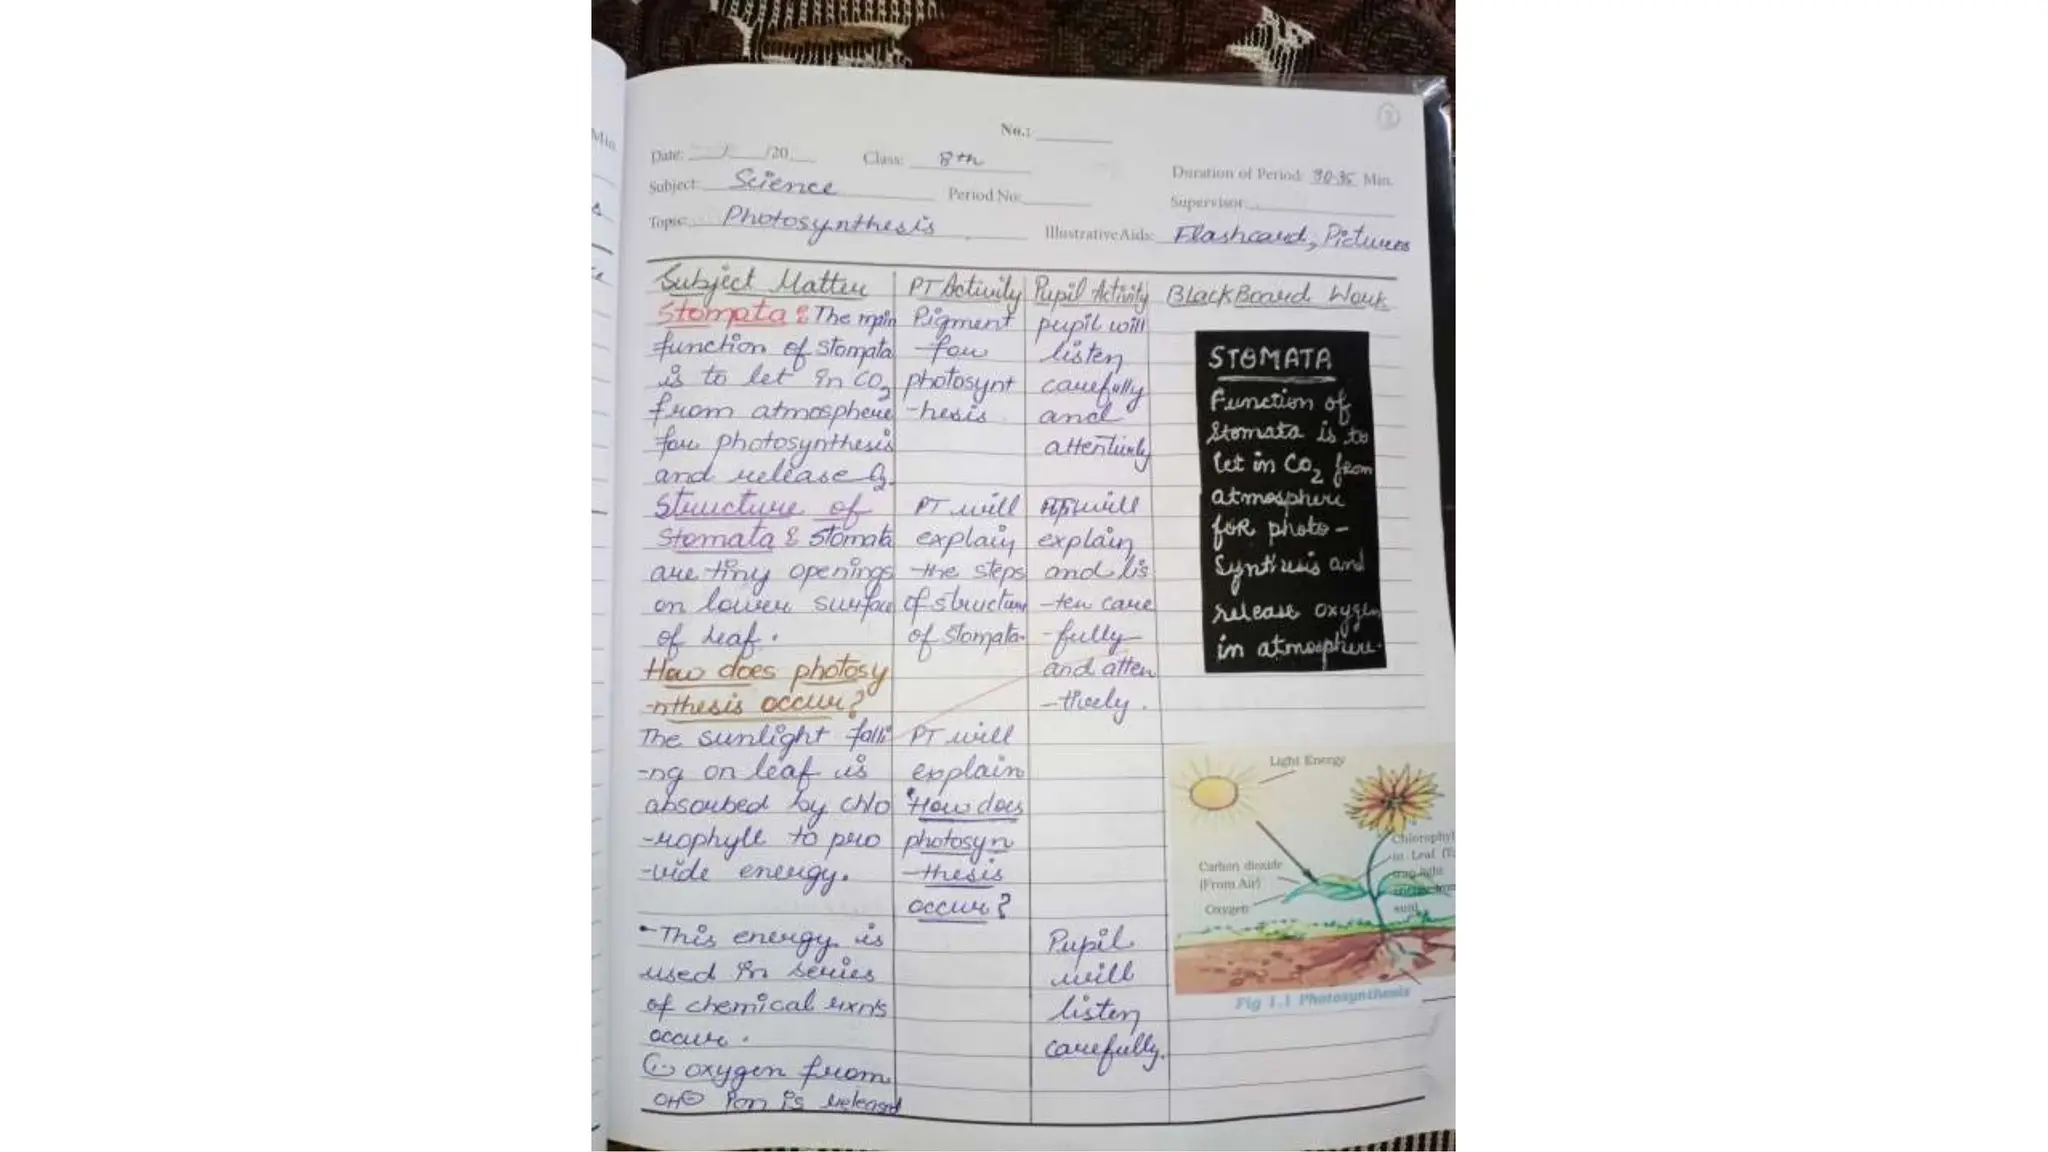 No.:
Date: / /20 Class: 8th
Duration of Period: 30-35 Min.
Subject: Science Period No:
Supervisor
Topic: Photosynthesis Illustrative Aids: Flashcard, Pictures
Subject Matter
Stomata : The main
function of stomata
is to let in CO2
from atmosphere
for photosynthesis
and release O2.
Structure of
Stomata : Stomata
are tiny openings
on lower surface
of leaf.
How does photosy
-nthesis occur?
The sunlight falli
-ng on leaf is
absorbed by chlo
-rophyll to pro
-vide energy.
This energy is
used in series
of chemical rxn's
occur.
oxygen from
OH⊖ ion is released
PT Activity
Pigment
for
photosynt
-hesis
PT will
explain
the steps
of structure
of stomata.
PT will
explain
"How does
photosyn
-thesis
occur?
Pupil Activity
pupil will
listen
carefully
and
attentively
will
explain
and lis
-ten care
-fully
and atten
-tively.
Pupil
will
listen
carefully.
BlackBoard Work
STOMATA
Function of
Stomata is to
let in CO2 from
atmosphere
foR photo-
Synthesis and
release oxygen
in atmosphere.
Light Energy
Chlorophyl
in Leaf
trap light
energy from
sun)
Carbon dioxide
(From Air)
Oxygen
Fig 1.1 Photosynthesis
Min.